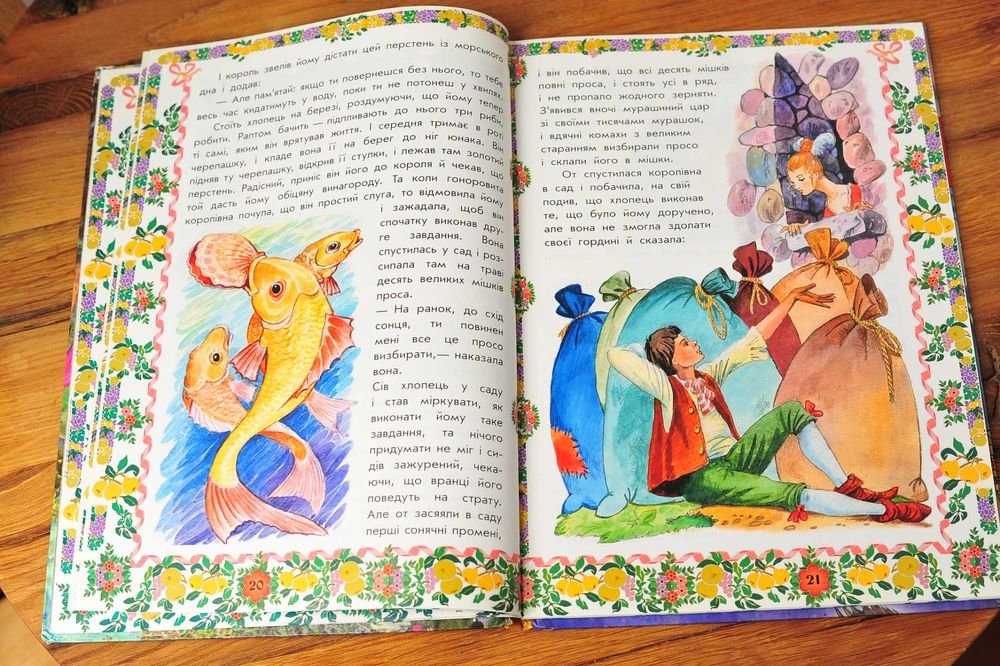 І король звелів йому дістати цей перстень із морського
дна і додав:
— Але пам'ятай: якщо ти повернешся без нього, то тебе
весь час кидатимуть у воду, поки ти не потонеш у хвилях.
Стоїть хлопець на березі, роздумуючи, що йому тепер
робити. Раптом бачить — підпливають до нього три риби,
ті самі, яким він врятував життя. І середня тримає в роті
черепашку, і кладе вона її на берег до ніг юнака. Він
підняв ту черепашку, відкрив її стулки, і лежав там золотий
перстень. Радісний, приніс він його до короля й чекав, що
той дасть йому обіцяну винагороду. Та коли гоноровита
королівна почула, що він простий слуга, то відмовила йому
і зажадала, щоб він
спочатку виконав дру-
ге завдання. Вона
спустилась у сад і роз-
сипала там на траві
десять великих мішків
проса.
— На ранок, до схід
сонця, ти повинен
мені все це просо
визбирати,— наказала
вона.
Сів хлопець у саду
і став міркувати, як
виконати йому таке
завдання, та нічого
придумати не міг і си-
дів зажурений, чека-
ючи, що вранці його
поведуть на страту.
Але от засяяли в саду
перші сонячні промені,
20
і він побачив, що всі десять мішків
повні проса, і стоять усі в ряд,
і не пропало жодного зерняти.
З'явився вночі мурашиний цар
зі своїми тисячами мурашок,
і вдячні комахи з великим
старанням визбирали просо
і склали його в мішки.
От спустилася королівна
в сад і побачила, на свій
подив, що хлопець виконав
те, що було йому доручено,
але вона не змогла здолати
своєї гордині й сказала:
21